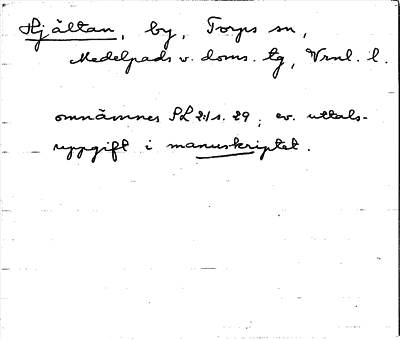 Hjältan, by, Torps sn,
Medelpads v. doms. tg, Vrnl. l.
omnämnes SL 2:1 s. 29, ev. uttals-
uppgift i manuskriptet.